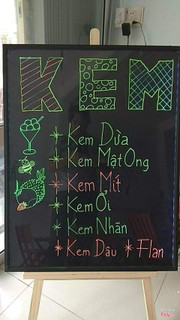 KEM
* Kem Dừa
* Kem Mật Ong
* Kem Mít
* Kem Ổi
* Kem Nhãn
* Kem Dâu * Flan